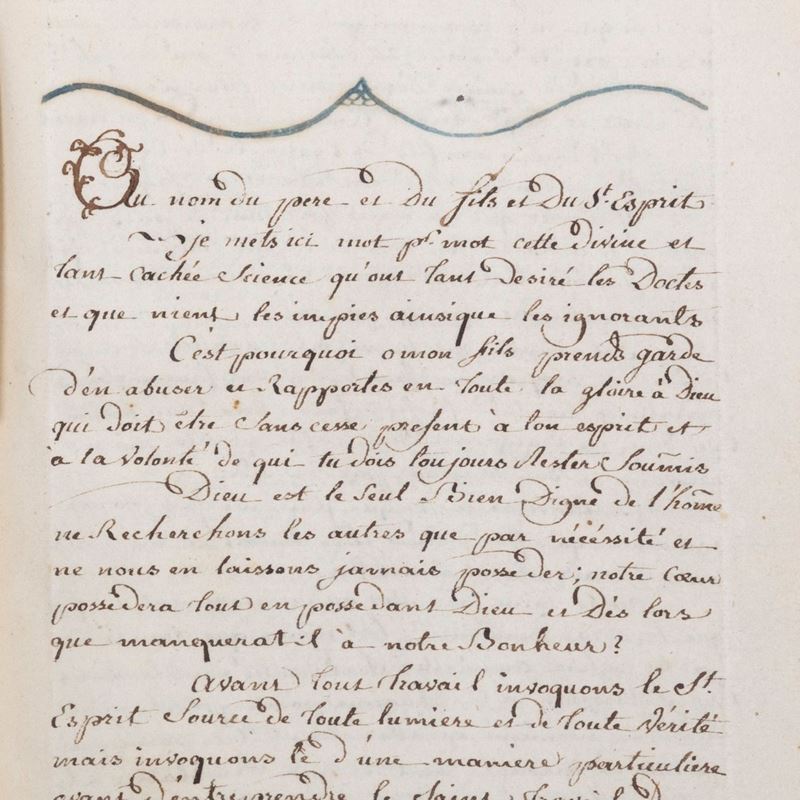 Au nom du pere et du fils et du St. Esprit
je mets ici mot pr. mot cette divine et
tant cachée science qu'ont tant desiré les Doctes
et que nient les impies ainsique les ignorants
C'est pourquoi o mon fils prends garde
d'en abuser et Rapportes en toute la gloire à Dieu
qui doit être sans cesse present à ton esprit et
à la volonté de qui tu dois toujours Rester soumis
Dieu est le seul Bien Digne de l'home
ne Recherchons les autres que par nécéssité et
ne nous en laissons jamais posseder; notre cœur
possedera tout en possedant Dieu et Dés lors
que manquerat il à notre Bonheur?
Avant tout travail invoquons le St.
Esprit source de toute lumiere et de toute vérité
mais invoquons le d'une maniere particuliere
avant d'entreprendre le saint travail